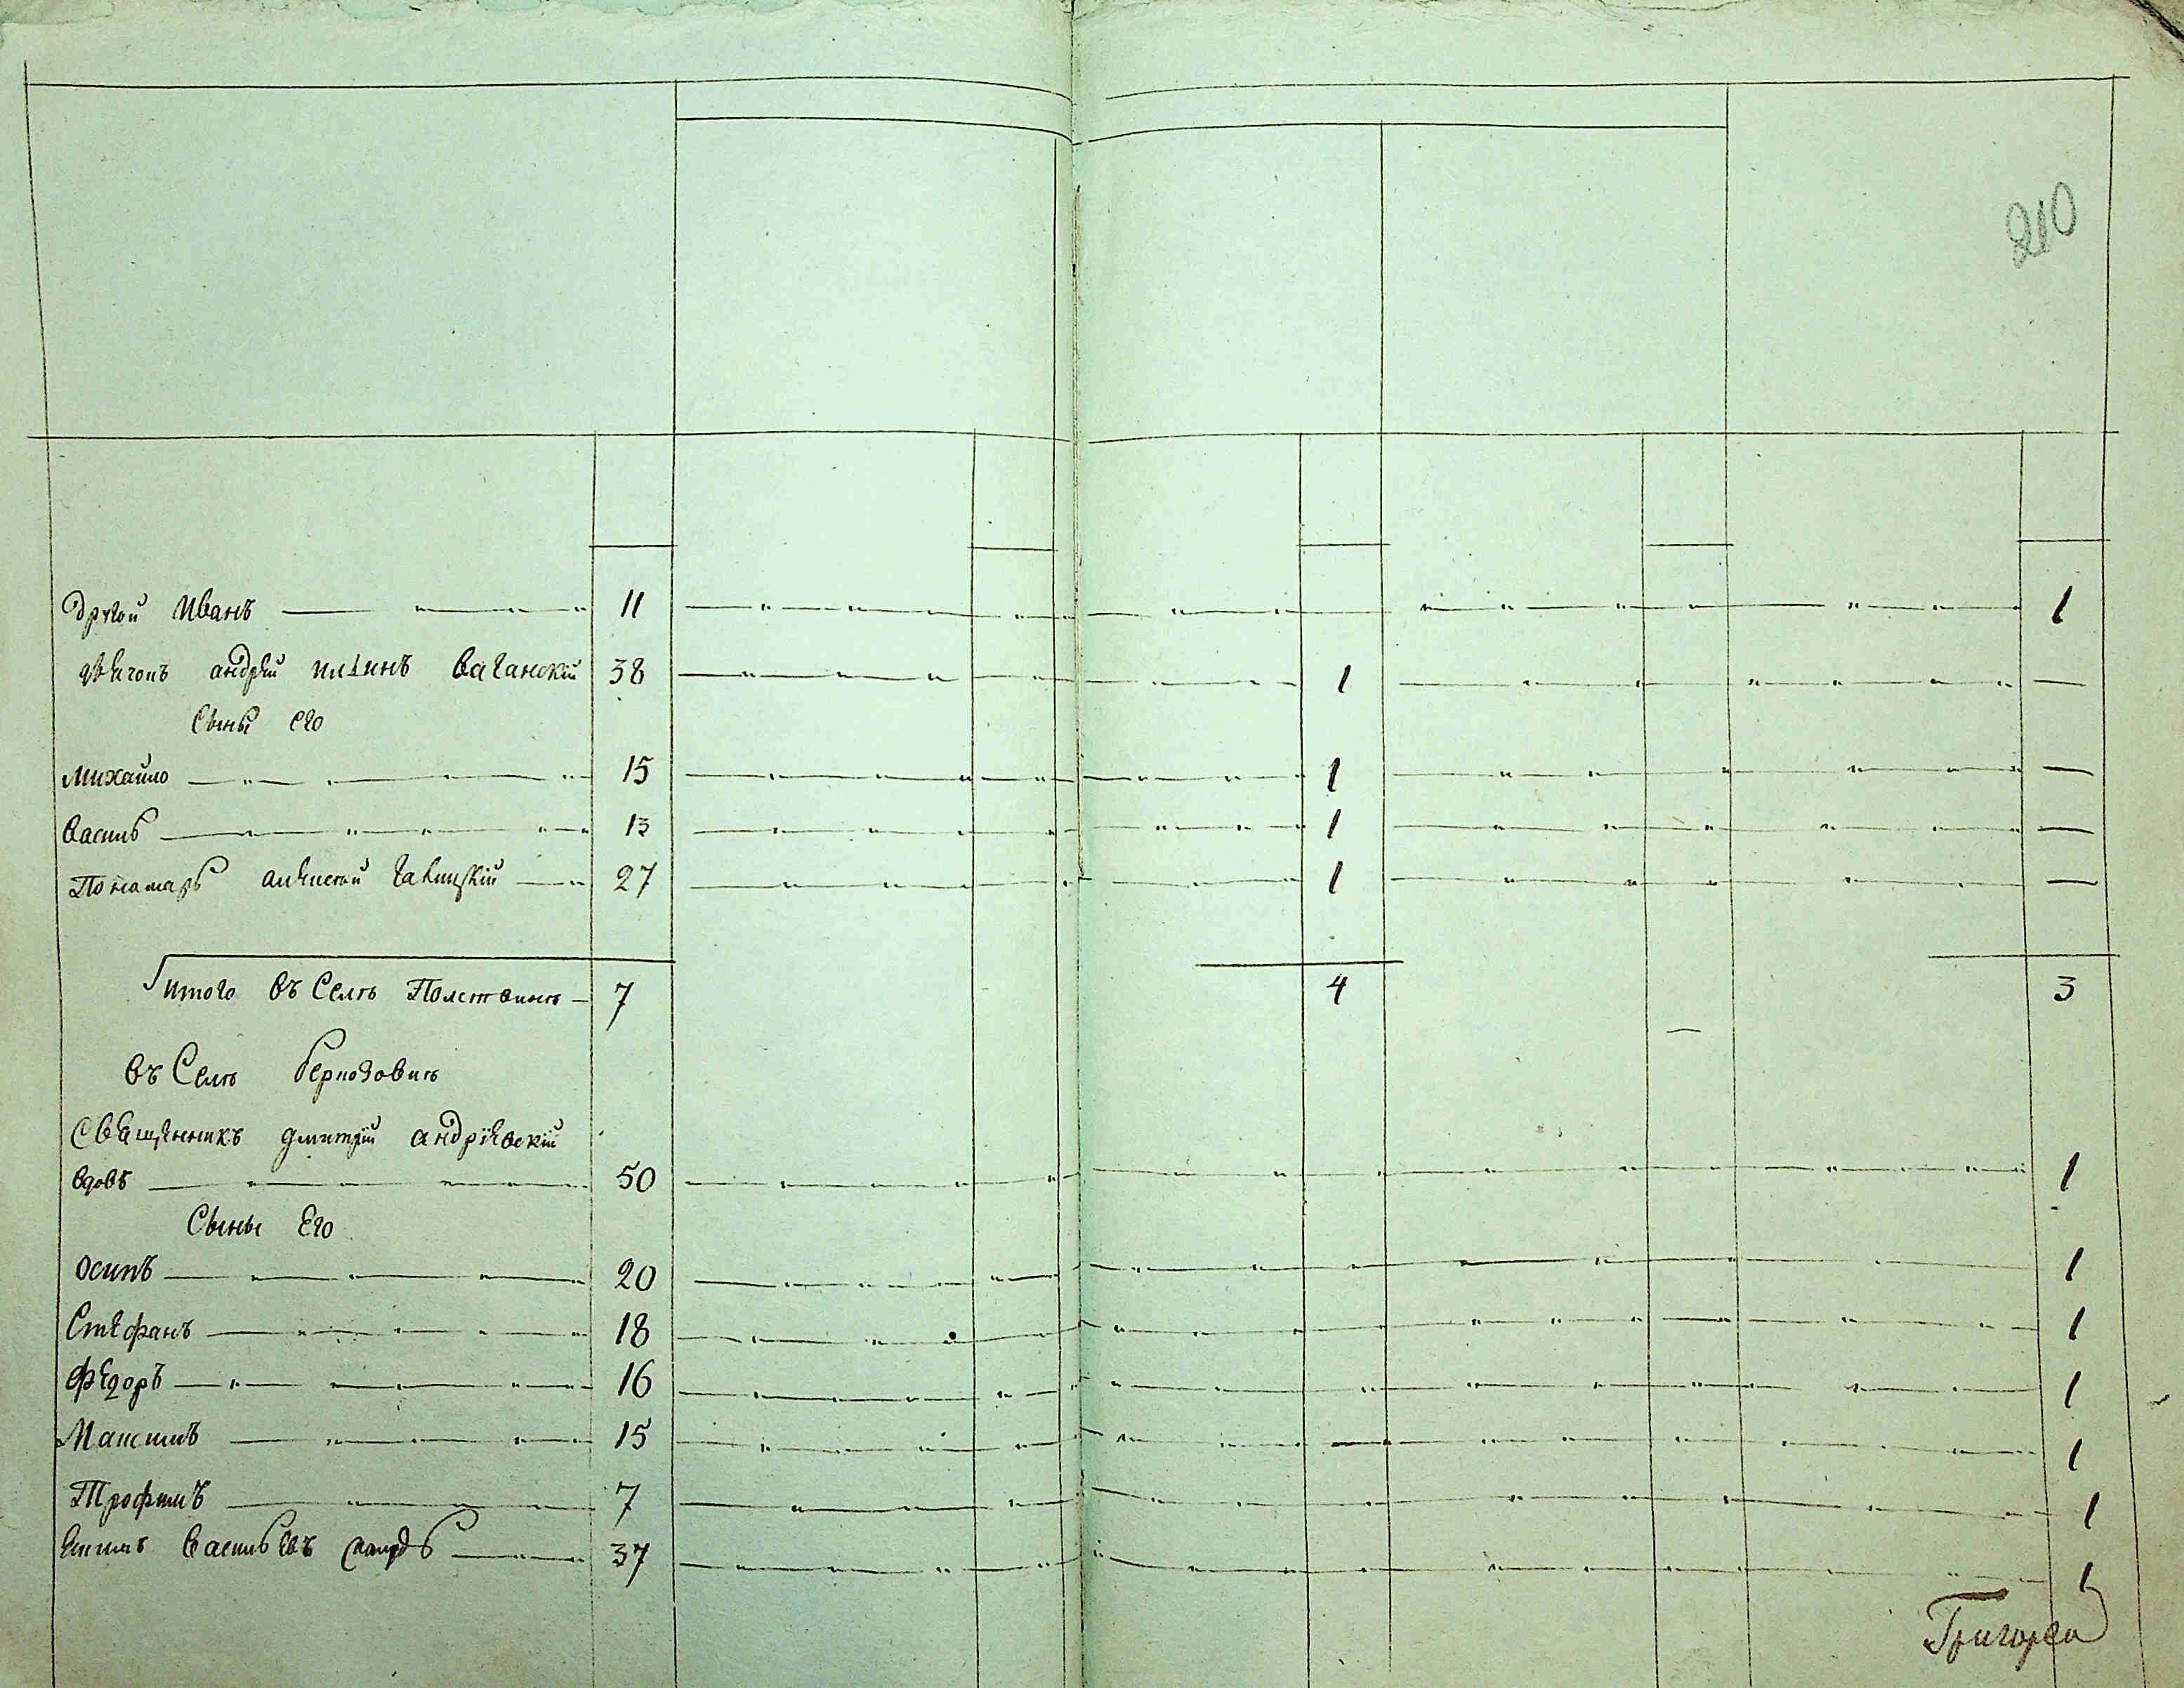 210
другой Иванъ 11 1
дьячокъ андрей ильинъ Ваганский 38 1
Сыны его
Михайло 15 1
Василь 13 1
Пономарь алексей галицкий 27 1
итого въ Селѣ Полствинѣ 7 4 3
въ Селѣ
Священникъ дмитрий андриевский
вдовъ 50 1
Сыны Его
осипъ 20 1
Стефанъ 18 1
Федоръ 16 1
Максимъ 15 1
Трофимъ 7 1
Васильевъ 37 1
Григорей